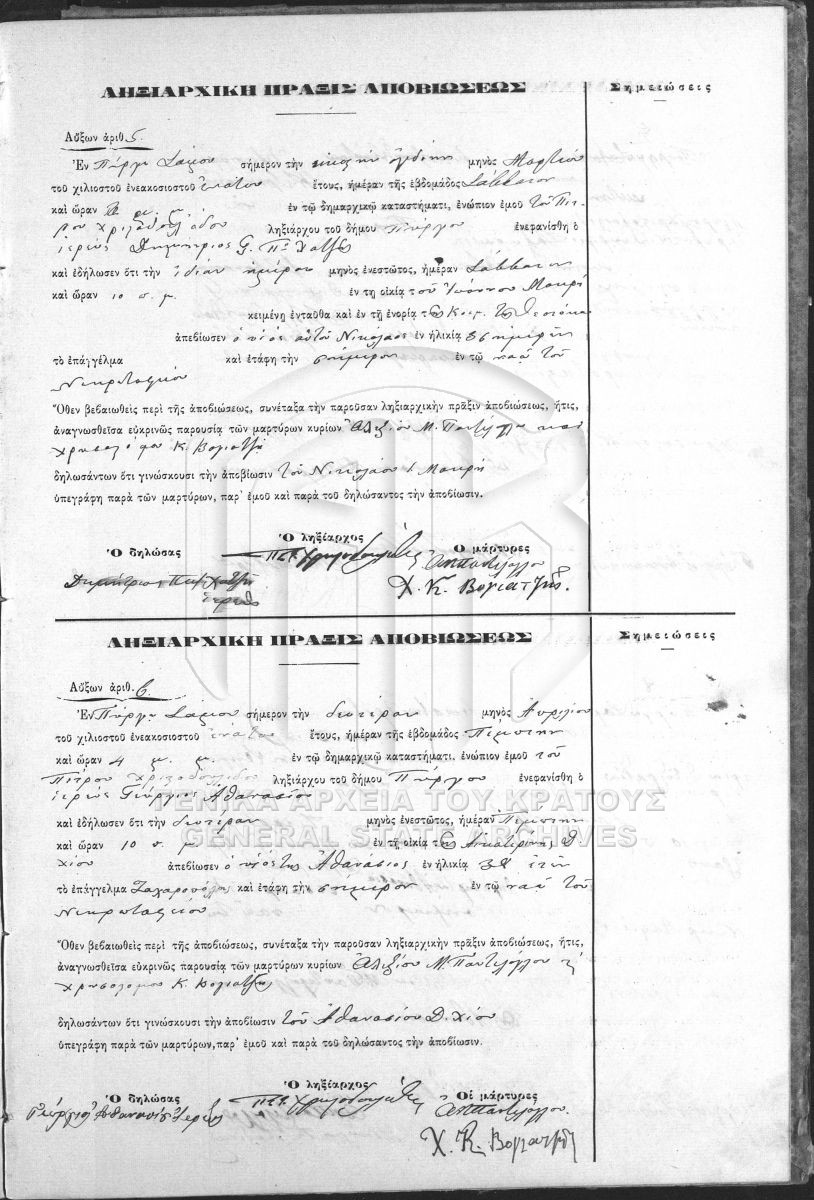 ΛΗΞΙΑΡΧΙΚΗ ΠΡΑΞΙΣ ΑΠΟΒΙΩΣΕΩΣ
Σημειώσεις
Αὔξων ἀριθ. 5.
Ἐν Πύργῳ Σάμου σήμερον τὴν εἰκοστὴν ὀγδόην μηνὸς Μαρτίου
τοῦ χιλιοστοῦ ἐνεακοσιοστοῦ ἐνάτου ἔτους, ἡμέραν τῆς ἑβδομάδος Σάββατον
καὶ ὥραν μ. μ. ἐν τῷ δημαρχικῷ καταστήματι, ἐνώπιον ἐμοῦ τοῦ Πέτ-
ρου ληξιάρχου τοῦ δήμου Πύργου ἐνεφανίσθη ὁ
ἱερεὺς Δημήτριος
καὶ ἐδήλωσεν ὅτι τὴν ἰδίαν ἡμέραν μηνὸς ἐνεστῶτος, ἡμέραν Σάββατον
καὶ ὥραν 10 π. μ. ἐν τῃ οἰκίᾳ τοῦ Ἰωάννου Μακρῆ
κειμένῃ ἐνταῦθα καὶ ἐν τῇ ἐνορίᾳ τῆς Κοιμ. τῆς Θεοτόκου
ἀπεβίωσεν ὁ υἱός αὐτοῦ Νικόλαος ἐν ἡλικίᾳ 36 ἡμερῶν
τὸ ἐπάγγελμα καὶ ἐτάφη τὴν σήμερον ἐν τῷ ναῷ τοῦ
Νεκροταφείου
Ὅθεν βεβαιωθεὶς περὶ τῆς ἀποβιώσεως, συνέταξα τὴν παροῦσαν ληξιαρχικὴν πρᾶξιν ἀποβιώσεως, ἥτις,
ἀναγνωσθεῖσα εὐκρινῶς παρουσίᾳ τῶν μαρτύρων κυρίων Ἀλεξίου Μ. Παντελόγλου καὶ
Χρυσοστόμου Κ. Βογιατζῆ
δηλωσάντων ὅτι γινώσκουσι τὴν ἀποβίωσιν τοῦ Νικολάου Ι Μακρῆ
ὑπεγράφη παρὰ τῶν μαρτύρων, παρ' ἐμοῦ καὶ παρὰ τοῦ δηλώσαντος τὴν ἀποβίωσιν.
Ὁ δηλώσας
Ὁ ληξίαρχος
Ο μάρτυρες
Δημήτριος
ἱερεὺς
Χ. Κ. Βογιατζῆς.
ΛΗΞΙΑΡΧΙΚΗ ΠΡΑΞΙΣ ΑΠΟΒΙΩΣΕΩΣ
Σημειώσεις
Αὔξων ἀριθ. 6.
Ἐν Πύργῳ Σάμου σήμερον τὴν δευτέραν μηνὸς Ἀπριλίου
τοῦ χιλιοστοῦ ἐνεακοσιοστοῦ ἐνάτου ἔτους, ἡμέραν τῆς ἑβδομάδος Πέμπτην
καὶ ὥραν 4 μ. μ. ἐν τῷ δημαρχικῷ καταστήματι. ἐνώπιον ἐμοῦ τοῦ
Πέτρου ληξιάρχου τοῦ δήμου Πύργου ἐνεφανίσθη ὁ
ἱερεὺς Γεώργιος Ἀθανασίου
καὶ ἐδήλωσεν ὅτι τὴν δευτέραν μηνὸς ἐνεστῶτος, ἡμέραν Πέμπτην
καὶ ὥραν 10 π. μ. ἐν τῇ οἰκίᾳ τῆς Αἰκατερίνης Δ
Χίου ἀπεβίωσεν ὁ υἱός της Ἀθανάσιος ἐν ἡλικίᾳ ἐτῶν
τὸ ἐπάγγελμα Ζαχαροπώλης καὶ ἐτάφη τὴν σήμερον ἐν τῷ ναῷ τοῦ
Νεκροταφείου
Ὅθεν βεβαιωθεὶς περὶ τῆς ἀποβιώσεως, συνέταξα τὴν παροῦσαν ληξιαρχικὴν πρᾶξιν ἀποβιώσεως, ἥτις,
ἀναγνωσθεῖσα εὐκρινῶς παρουσίᾳ τῶν μαρτύρων κυρίων Ἀλεξίου Μ. Παντελόγλου
Χρυσοστόμου Κ. Βογιατζῆ
δηλωσάντων ὅτι γινώσκουσι τὴν ἀποβίωσιν τοῦ Ἀθανασίου Δ. Χίου
ὑπεγράφη παρὰ τῶν μαρτύρων, παρ' ἐμοῦ καὶ παρὰ τοῦ δηλώσαντος τὴν ἀποβίωσιν.
Ὁ δηλώσας
Ὁ ληξίαρχος
Οἱ μάρτυρες
Χ. Κ. Βογιατζῆς
ΓΕΝΙΚΑ ΑΡΧΕΙΑ ΤΟΥ ΚΡΑΤΟΥΣ
GENERAL STATE ARCHIVES